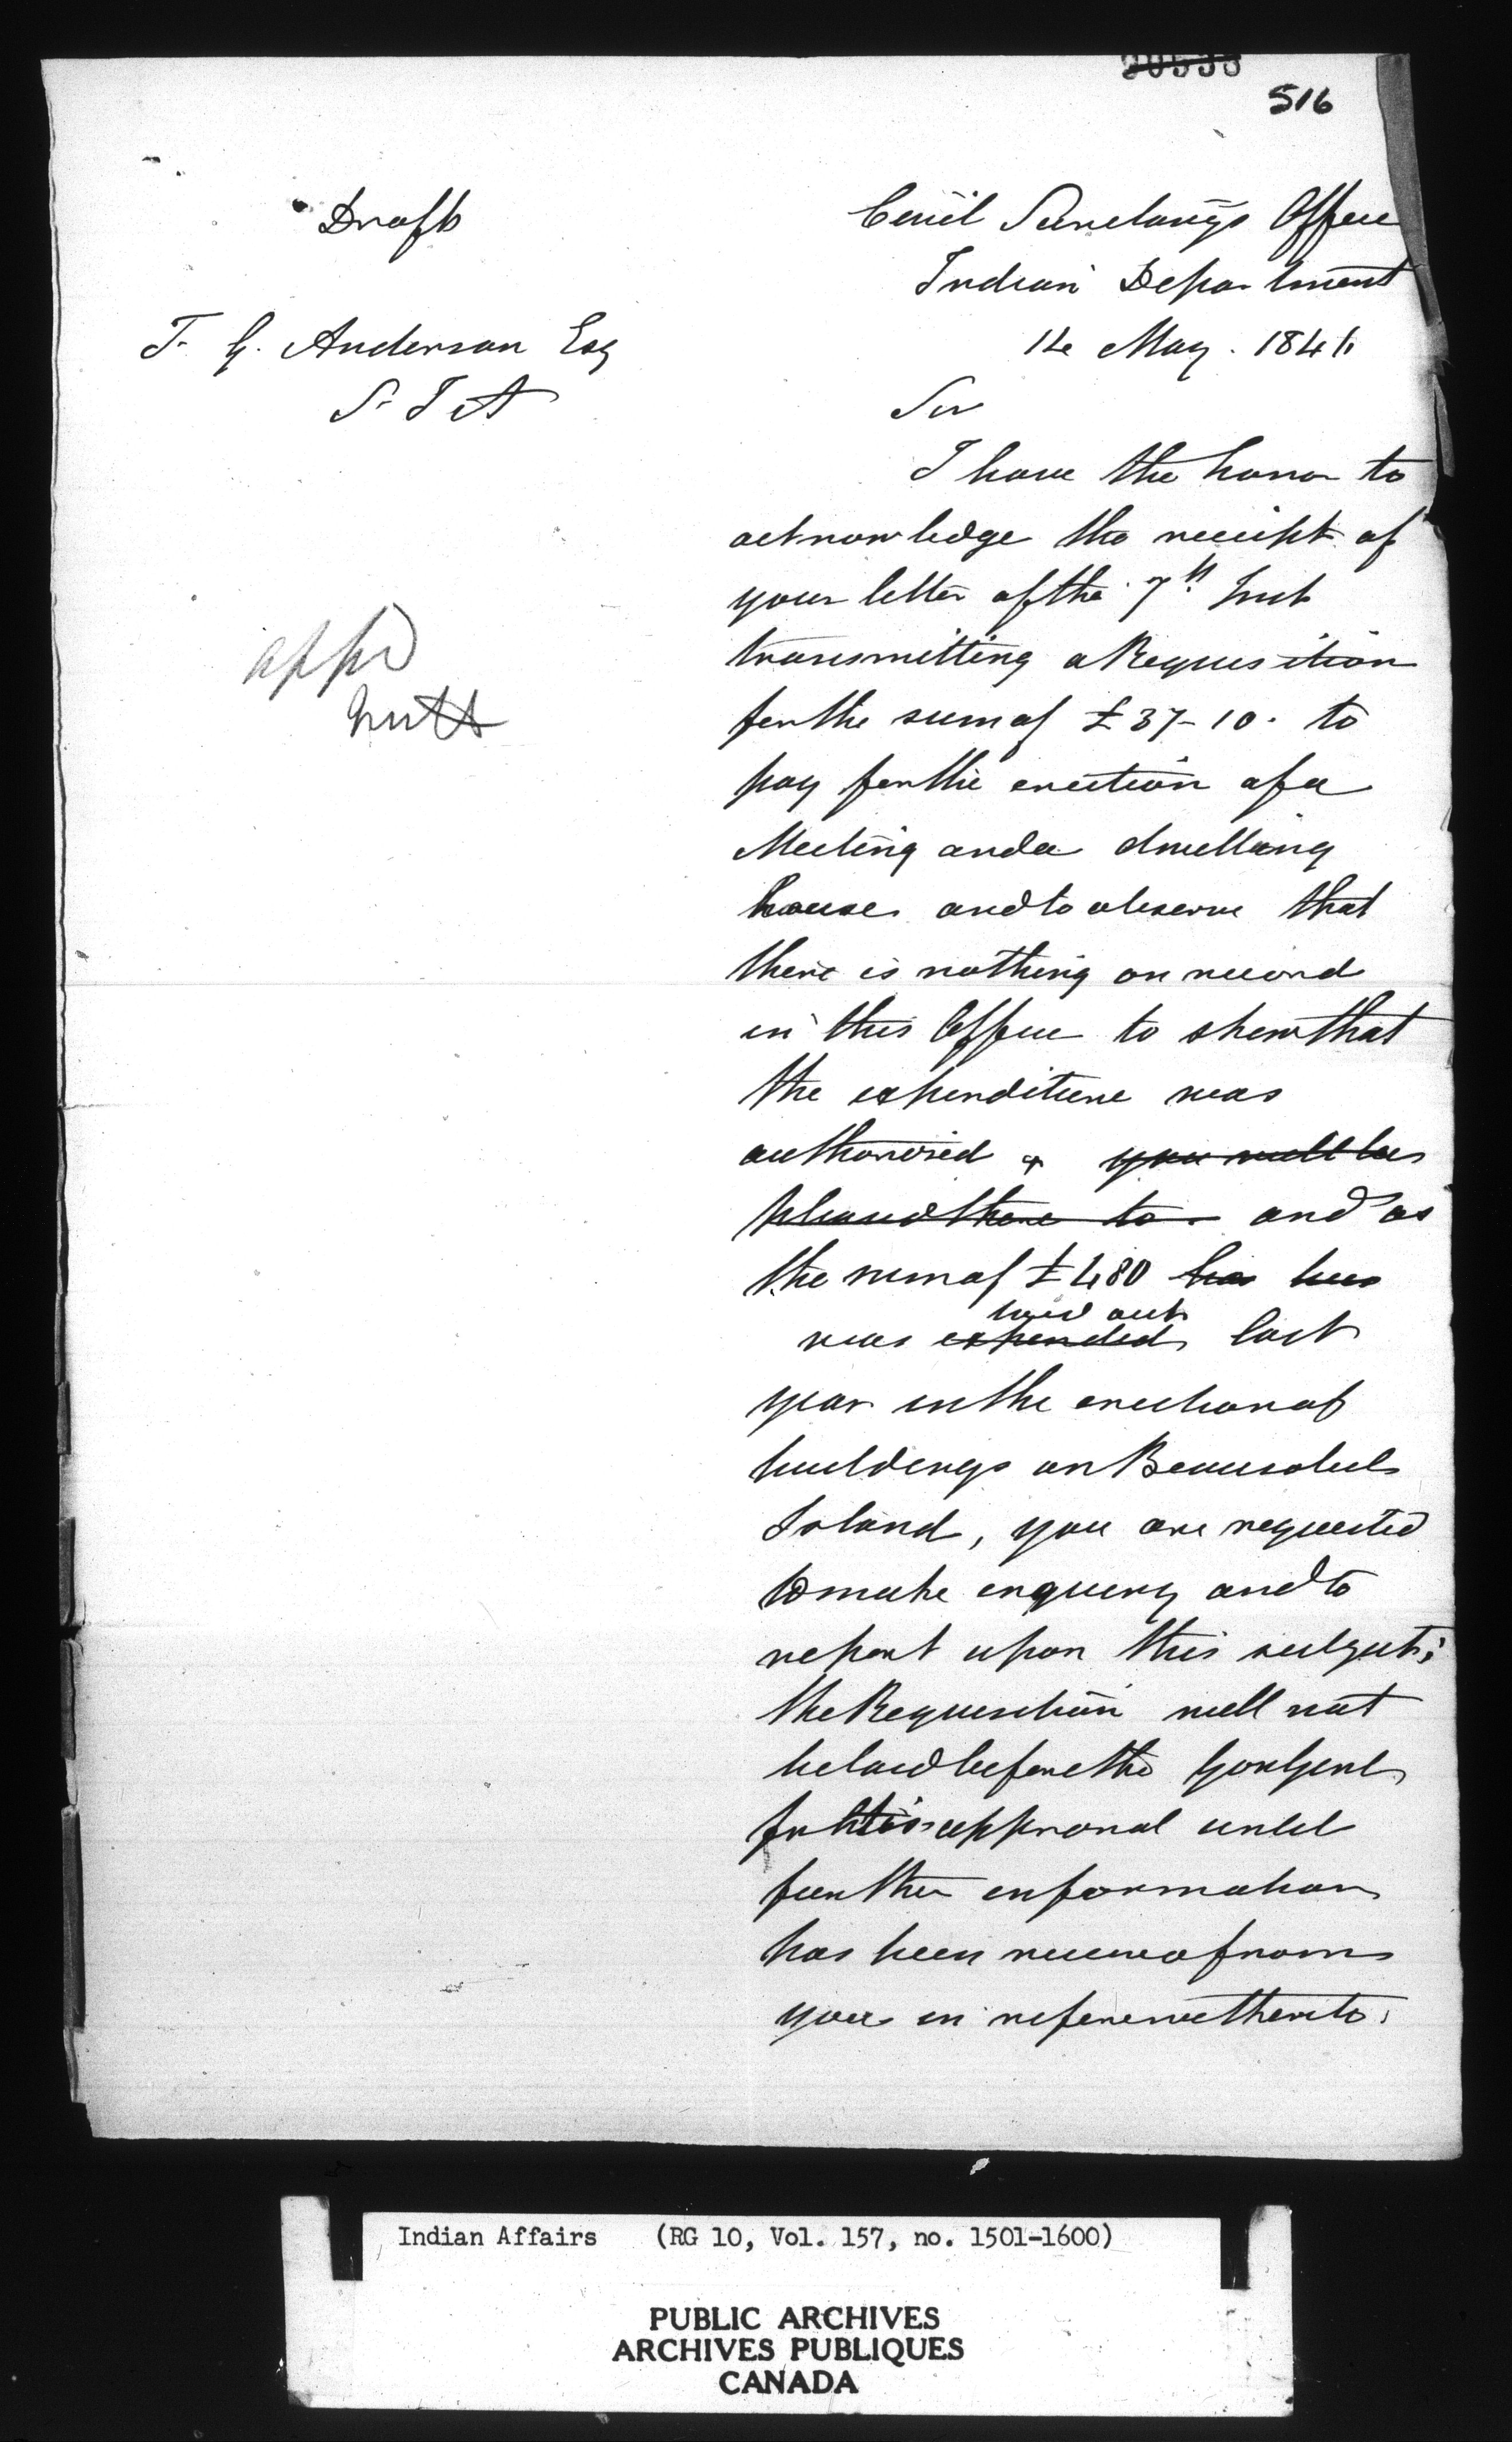 516
Draft
T. G. Anderson Esq
S. I A
appd
Civil Secretary's Office
Indian Department
14 May. 1846
Sir
I have the honor to
acknowledge the receipt of
your letter of the 7th Inst
transmitting a Requisition
for the sum of £37-10. to
pay for the erection of a
Meeting and a dwelling
house and to observe that
there is nothing on record
in this Office to shew that
the expenditure was
authorised & you will be
pleased there to and as
the sum of £480 has been
laid out
was expended last
year in the erection of
buildings on Beausoleil
Island, you are requested
to make enquiry and to
report upon this subject;
the Requisition will not
be laid before the Gov Genl
for His approval until
further information
has been received from
you in reference thereto.
Indian Affairs (RG 10, Vol. 157, no. 1501-1600)
PUBLIC ARCHIVES
ARCHIVES PUBLIQUES
CANADA